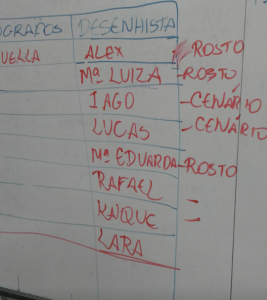 OGRAFOS DESENHISTA
UELLA ALEX ROSTO
Mª LUIZA - ROSTO
IAGO - CENÁRIO
LUCAS - CENÁRIO
Mª EDUARDA - ROSTO
RAFAEL
KAIQUE
LARA